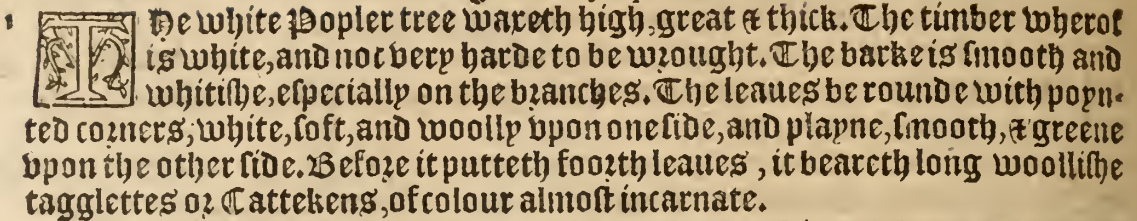 1 THe white Popler tree waxeth high, great & thick. The timber wherof
is white, and not very harde to be wꝛought. The barke is ſmooth and
whitiſhe, eſpecially on the bꝛanches. The leaues be rounde with poyn-
ted coꝛners, white, ſoft, and woolly vpon one ſide, and playne, ſmooth, & greene
vpon the other ſide. Befoꝛe it putteth fooꝛth leaues, it beareth long woolliſhe
tagglettes oꝛ Cattekens, of colour almoſt incarnate.